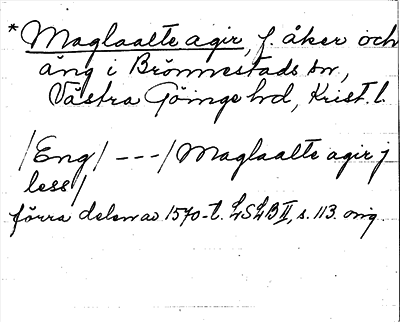 * Maglaalte agir, f. åker och
äng i Brönnestads sn,
Västra Göinge hd, Krist. l.
/Eng/ --- / Maglaalte agir j
less/
förra delen av 1570-t. LSLB II, s. 113. orig.